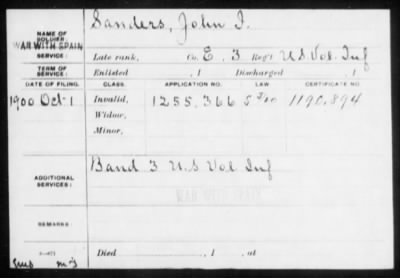 NAME OF SOLDIER: Sanders, John I.
WAR WITH SPAIN
SERVICE: Late rank, Co. E, 3 Reg't US Vol. Inf
TERM OF SERVICE: Enlisted , 1 Discharged , 1
DATE OF FILING. CLASS. APPLICATION NO. LAW CERTIFICATE NO.
1900 Oct 1 Invalid, 1255,366 1190,894
Widow,
Minor,
ADDITIONAL SERVICES: Band 3 U.S Vol Inf
WAR WITH SPAIN
REMARKS:
Died , 1 , at